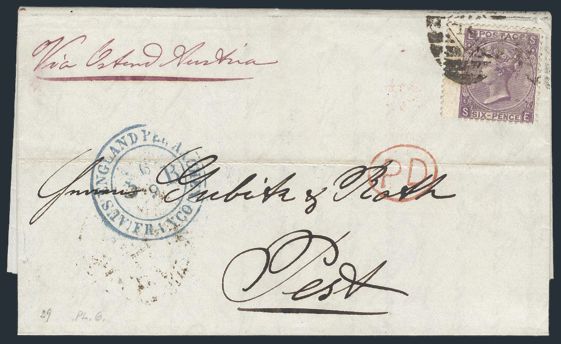 Via Ostend Austria
POSTAGE
SIX-PENCE
S E
ENGLAND PER AACHEN
FRANCO
PD
Gubitz & Roth
Pest
29 Pl. 6.